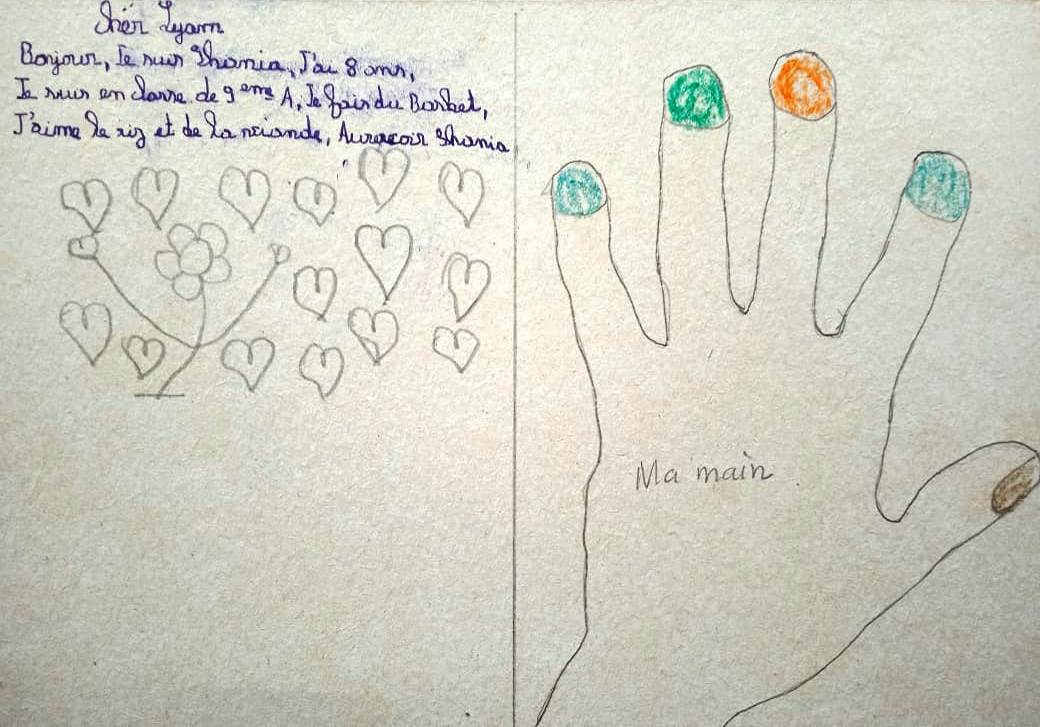 Shér Lyam
Bonjour, Je suis Shania, J'ai 8 ans,
Je suis en classe de 9ème A, Je fais du Basket,
J'aime le riz et de la viande, Aurevoir Shania
Ma main